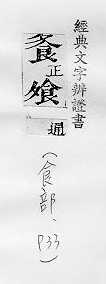 經典文字辨證書
正
通
(食部、P33)